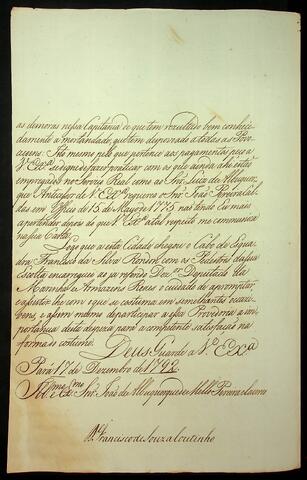 as demoras nessa Capitania de que tem rezultado bem conheci-
damente a mortandade, que tem
Até mesmo pelo que pertence aos pagamentos peço a
V. Exª se digne de fazer praticar com os que ainda ahi estão
empregados no Serviço Real como ao Snr. Luiz de Albuquer-
que Antecessor de V. Exª requereo o Snr. João Pereira Cal-
das em Officio de 15 de Mayo de 1775
depois de que V. Exª a tal respeito me communica
na sua Carta.
Logo que a esta Cidade chegou o Cabo de Esqua-
dra Francisco da Silva Rondon com os Pedestres da sua
Escolta encarreguei ao
Marinha e Armazens Reaes o cuidado de apromptar
em semelhantes occazi-
ões, e assim mesmo de participar a essa Provedoria a im-
portancia desta despeza para a competente satisfação na
forma do costume.
Deus Guarde a V. Exª
Pará 17 de Dezembro de 1792
Illmo e Exmo Snr. João de Albuquerque de Mello Pereira e Caceres
D. Francisco de Souza Coutinho